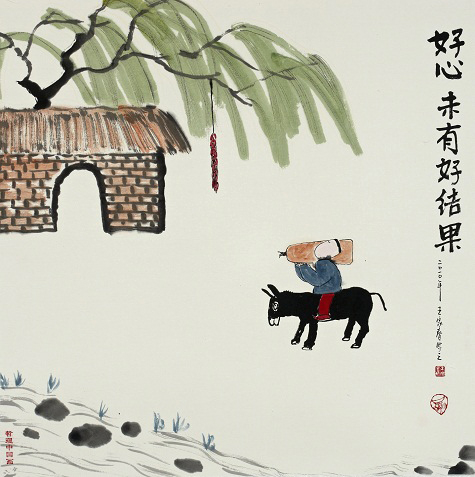 好心未有好结果
二〇一〇年
哲理中国画